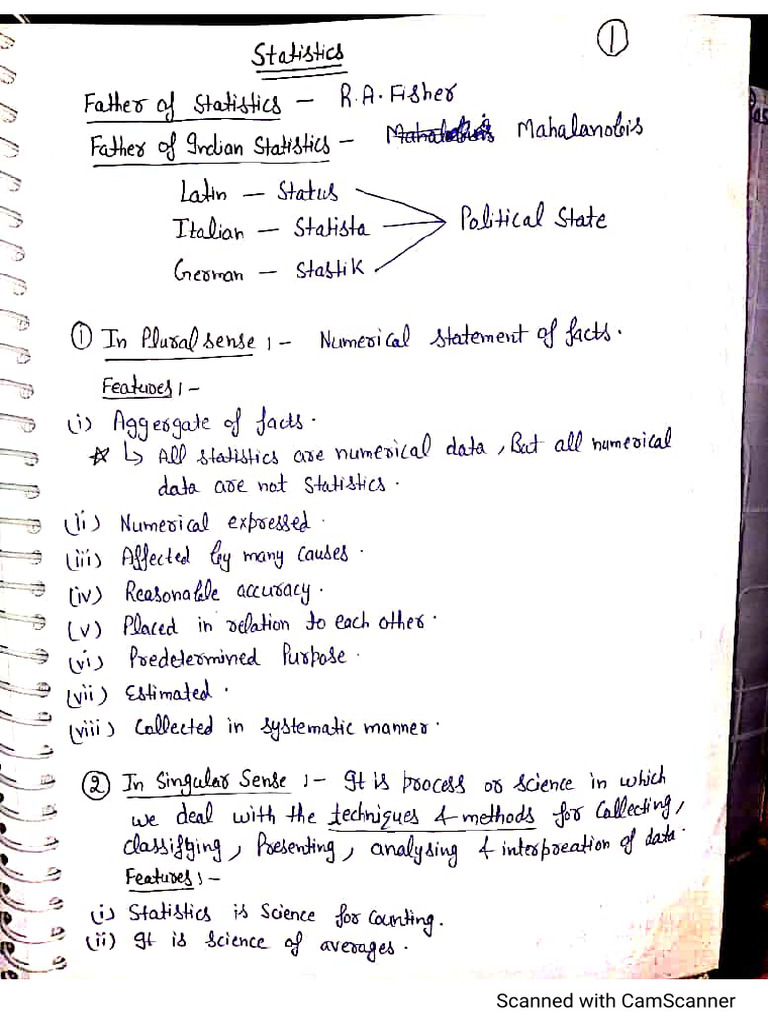 ①
Statistics
Father of Statistics – R.A. Fisher
Father of Indian Statistics – Mahalanobis
Latin – Status
Italian – Statista
Political State
German – Stastik
① In Plural sense :- Numerical statement of facts.
Features :-
(i) Aggergate of facts.
☆ ↳ All statistics are numerical data, But all numerical
data are not statistics.
(ii) Numerical expressed.
(iii) Affected by many causes.
(iv) Reasonable accuracy.
(v) Placed in relation to each other.
(vi) Predetermined Purpose.
(vii) Estimated.
(viii) Collected in systematic manner.
② In Singular Sense :- It is process or science in which
we deal with the techniques & methods for Collecting,
classifying, Presenting, analysing & interpreation of data.
Features :-
(i) Statistics is Science for Counting.
(ii) It is science of averages.
Scanned with CamScanner